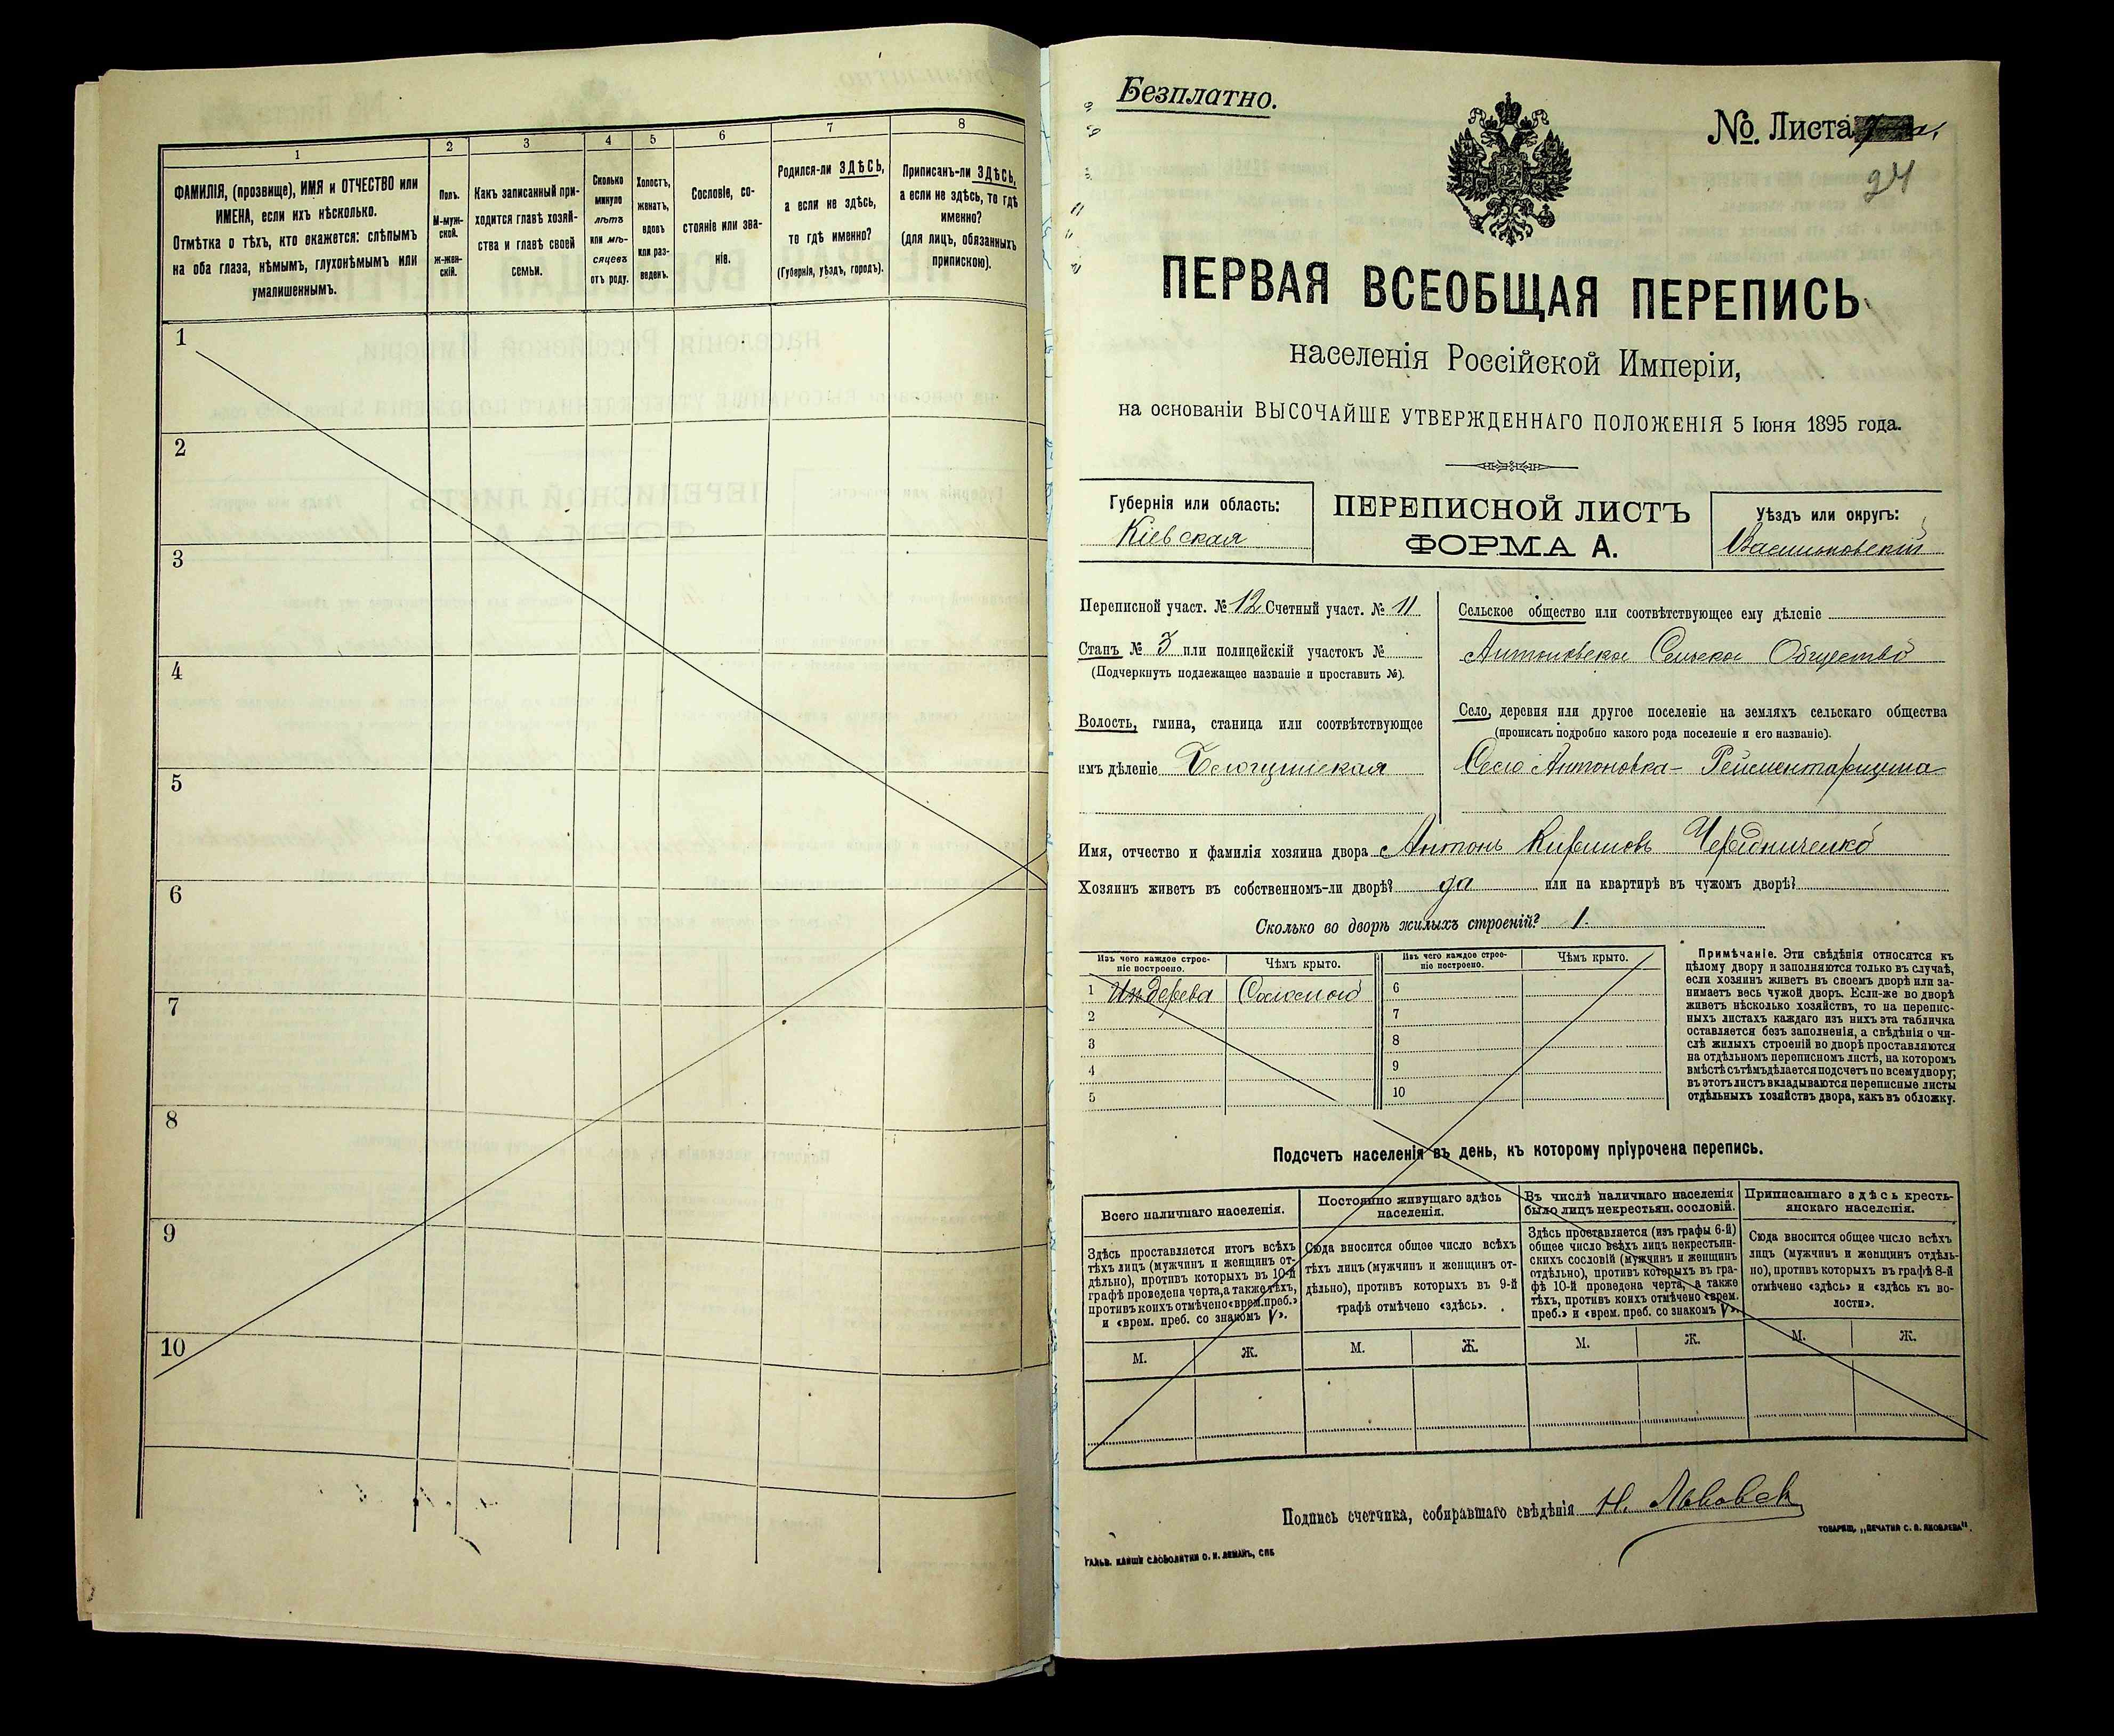 1
2
3
4
5
6
7
8
ФАМИЛІЯ, (прозвище), ИМЯ и ОТЧЕСТВО или
ИМЕНА, если ихъ нѣсколько.
Отмѣтка о тѣхъ, кто окажется: слѣпымъ
на оба глаза, нѣмымъ, глухонѣмымъ или
умалишеннымъ.
Полъ.
М-муж-
ской.
ж-жен-
скій.
Какъ записанный при-
ходится главѣ хозяй-
ства и главѣ своей
семьи.
Сколько
минуло
лѣтъ
или мѣ-
сяцевъ
отъ роду.
Холостъ,
женатъ,
вдовъ
или раз-
веденъ.
Сословіе, со-
стояніе или зва-
ніе.
Родился-ли ЗДѢСЬ,
а если не здѣсь,
то гдѣ именно?
(Губернія, уѣздъ, городъ).
Приписанъ-ли ЗДѢСЬ,
а если не здѣсь, то гдѣ
именно?
(для лицъ, обязанныхъ
припискою).
1
2
3
4
5
6
7
8
9
10
Безплатно.
№. Листа
24
ПЕРВАЯ ВСЕОБЩАЯ ПЕРЕПИСЬ
населенія Россійской Имперіи,
на основаніи ВЫСОЧАЙШЕ УТВЕРЖДЕННАГО ПОЛОЖЕНІЯ 5 Іюня 1895 года.
Губернія или область:
Кіевская
ПЕРЕПИСНОЙ ЛИСТЪ
ФОРМА А.
Уѣздъ или округъ:
Васильковскій
Переписной участ. № 12 Счетный участ. № 11
Станъ № 3 или полицейскій участокъ №
(Подчеркнуть подлежащее названіе и проставить №).
Волость, гмина, станица или соотвѣтствующее
имъ дѣленіе
Сельское общество или соотвѣтствующее ему дѣленіе
Антоновское Сельское Общество
Село, деревня или другое поселеніе на земляхъ сельскаго общества
(прописать подробно какого рода поселеніе и его названіе).
Село Антоновка - Рейментарщина
Имя, отчество и фамилія хозяина двора Антонъ Кириловъ Чередниченко
Хозяинъ живетъ въ собственномъ-ли дворѣ? да или на квартирѣ въ чужомъ дворѣ?
Сколько во дворѣ жилыхъ строеній? 1.
Изъ чего каждое строе-
ніе построено.
Чѣмъ крыто.
Изъ чего каждое строе-
ніе построено.
Чѣмъ крыто.
1 Из дерева Соломою
2
3
4
5
6
7
8
9
10
Примѣчаніе. Эти свѣдѣнія относятся къ
цѣлому двору и заполняются только въ случаѣ,
если хозяинъ живетъ въ своемъ дворѣ или за-
нимаетъ весь чужой дворъ. Если-же во дворѣ
живетъ нѣсколько хозяйствъ, то на перепис-
ныхъ листахъ каждаго изъ нихъ эта табличка
оставляется безъ заполненія, а свѣдѣнія о чи-
слѣ жилыхъ строеній во дворѣ проставляются
на отдѣльномъ переписномъ листѣ, на которомъ
вмѣстѣ съ тѣмъ дѣлается подсчетъ по всему двору;
въ этотъ листъ вкладываются переписные листы
отдѣльныхъ хозяйствъ двора, какъ въ обложку.
Подсчетъ населенія въ день, къ которому пріурочена перепись.
Всего наличнаго населенія.
Здѣсь проставляется итогъ всѣхъ
тѣхъ лицъ (мужчинъ и женщинъ от-
дѣльно), противъ которыхъ въ 10-й
графѣ проведена черта, а также тѣхъ,
противъ коихъ отмѣчено «врем. преб.»
и «врем. преб. со знакомъ V».
М.
Ж.
Постоянно живущаго здѣсь
населенія.
Сюда вносится общее число всѣхъ
тѣхъ лицъ (мужчинъ и женщинъ от-
дѣльно), противъ которыхъ въ 9-й
графѣ отмѣчено «здѣсь».
М.
Ж.
Въ числѣ наличнаго населенія
было лицъ некрестьян. сословій.
Здѣсь проставляется (изъ графы 6-й)
общее число всѣхъ лицъ некрестьян-
скихъ сословій (мужчинъ и женщинъ
отдѣльно), противъ которыхъ въ гра-
фѣ 10-й проведена черта, а также
тѣхъ, противъ коихъ отмѣчено «врем.
преб.» и «врем. преб. со знакомъ V».
М.
Ж.
Приписаннаго здѣсь кресть-
янскаго населенія.
Сюда вносится общее число всѣхъ
лицъ (мужчинъ и женщинъ отдѣль-
но), противъ которыхъ въ графѣ 8-й
отмѣчено «здѣсь» и «здѣсь къ во-
лости».
М.
Ж.
Подпись счетчика, собиравшаго свѣдѣнія
ГАЛЬВ. КЛИШЕ СЛОВОЛИТНИ О. И. ЛЕМАНЪ, СПБ
ТОВАРИЩ. „ПЕЧАТНЯ С. П. ЯКОВЛЕВА".